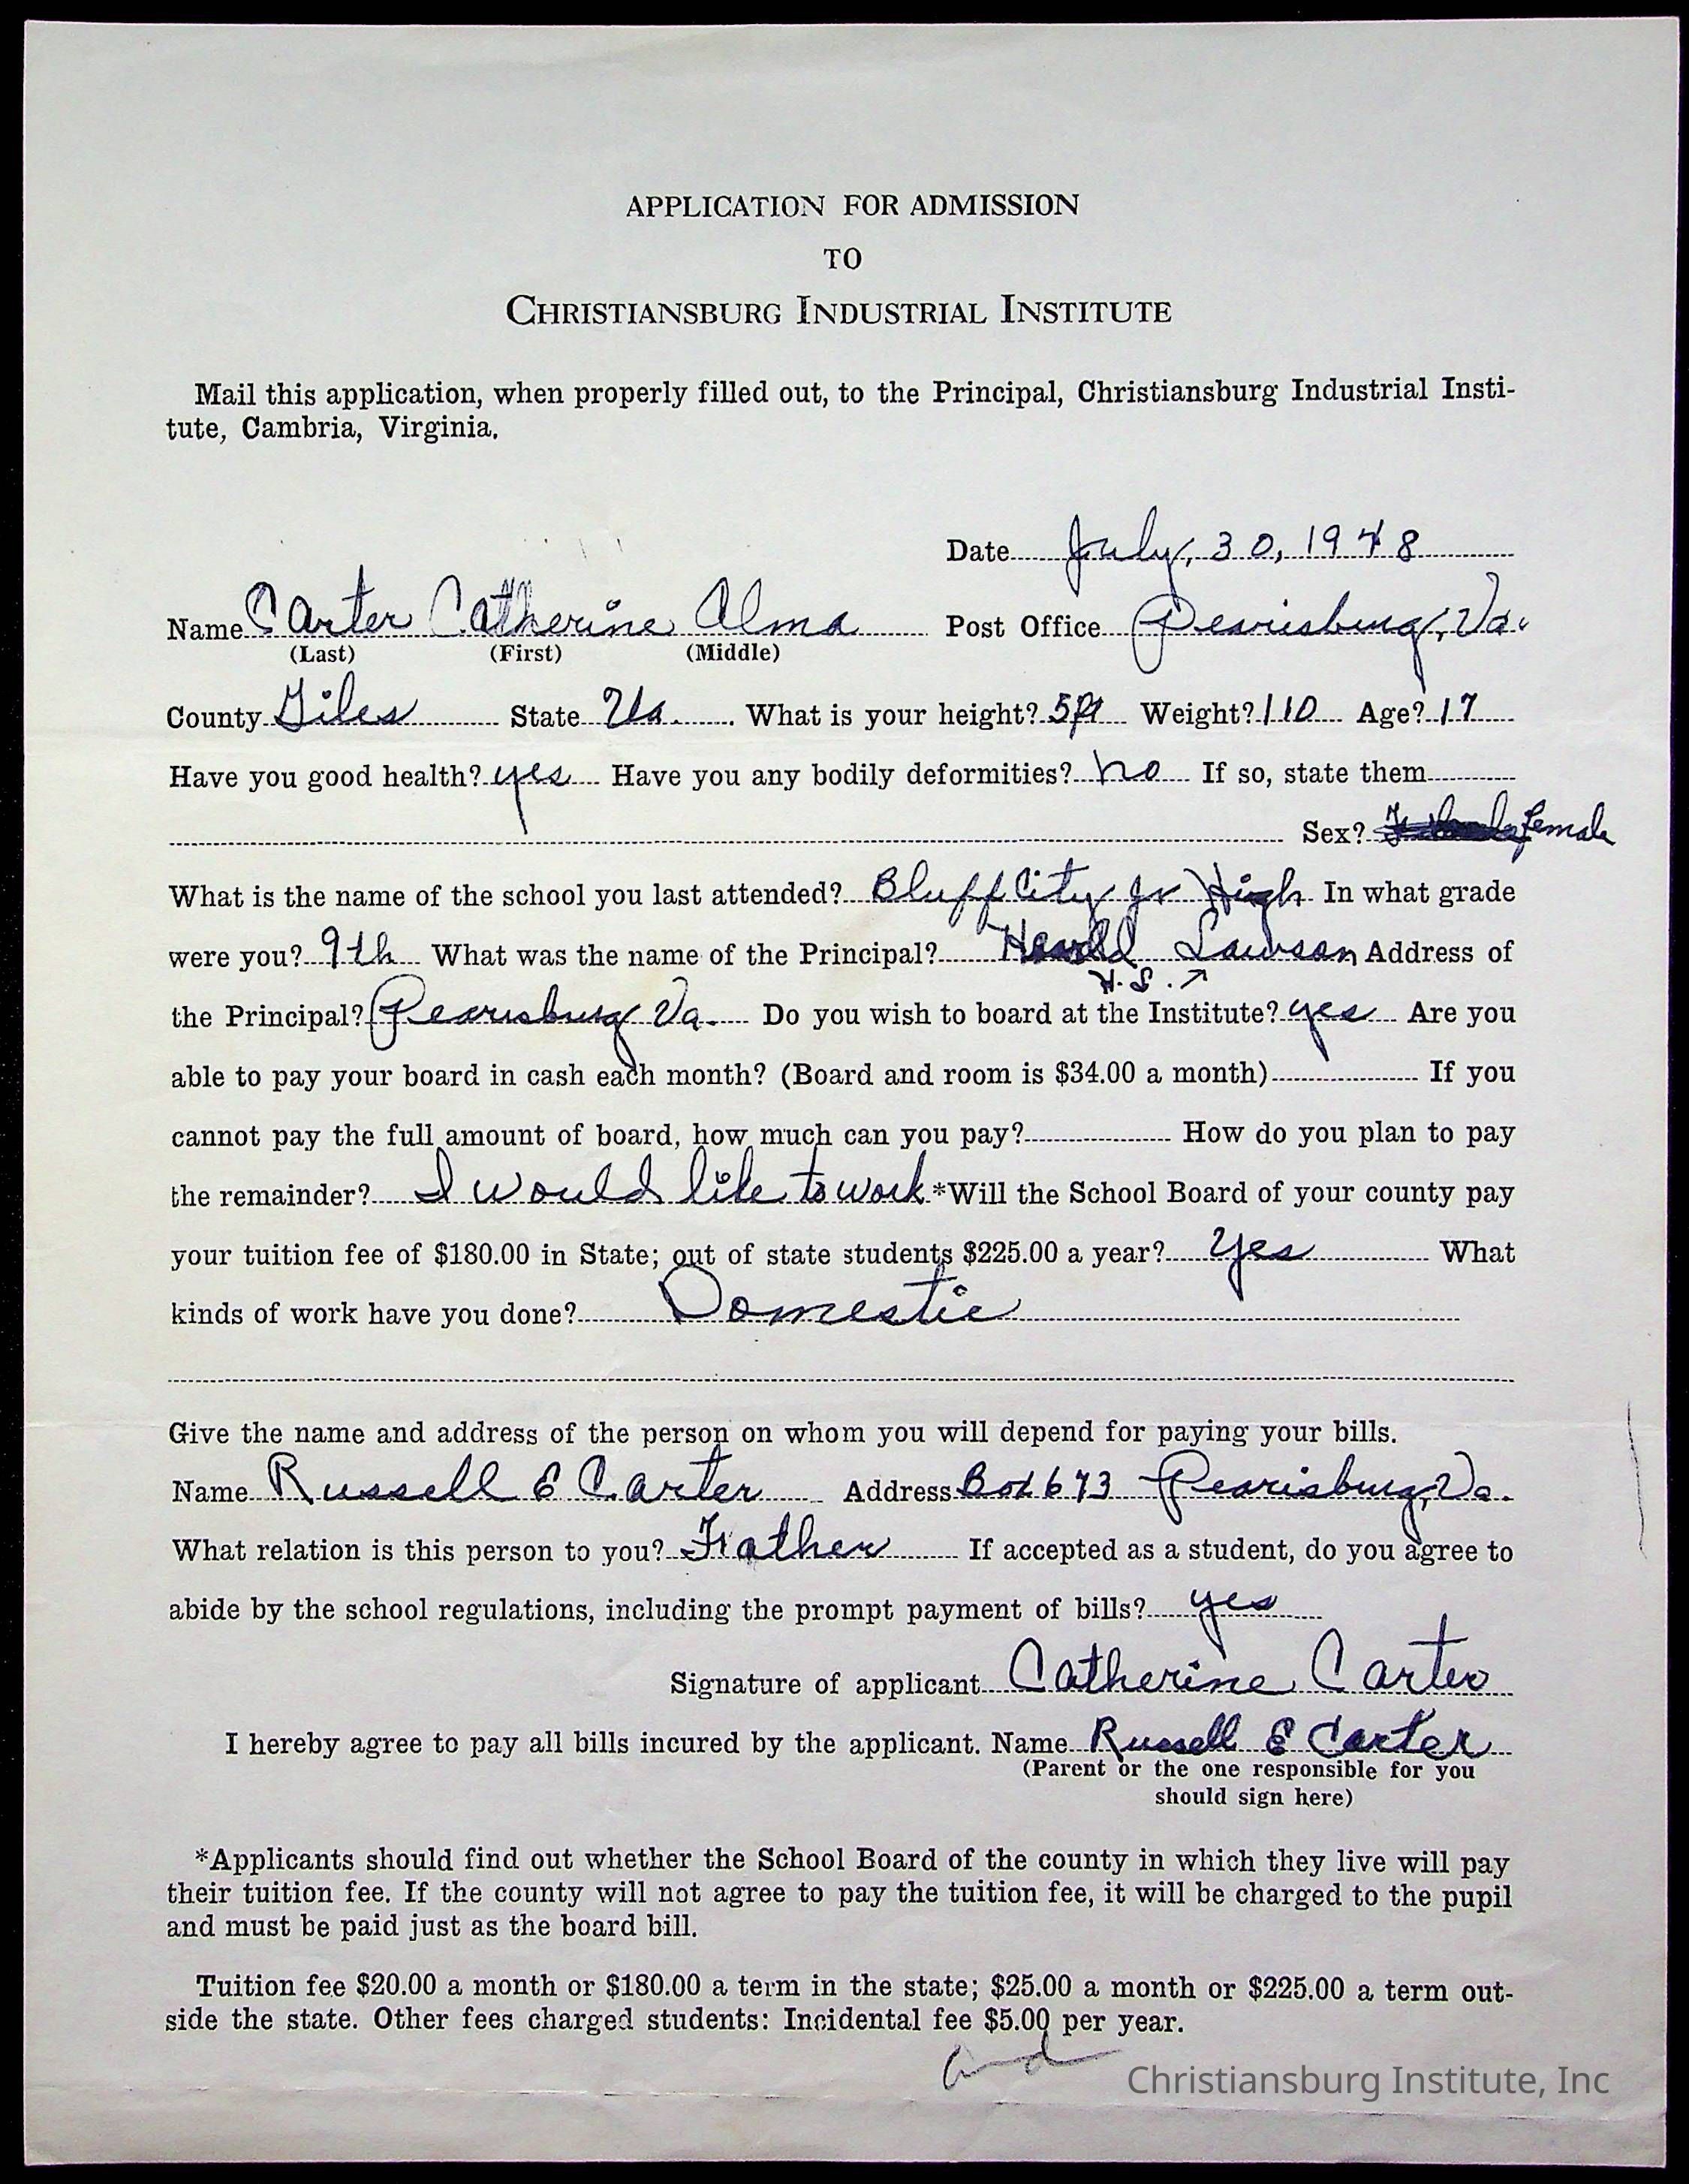 APPLICATION FOR ADMISSION
TO
CHRISTIANSBURG INDUSTRIAL INSTITUTE
Mail this application, when properly filled out, to the Principal, Christiansburg Industrial Insti-
tute, Cambria, Virginia.
Date July, 30, 1948
Name Carter Catherine Alma Post Office Pearisburg, Va.
(Last) (First) (Middle)
County Giles State Va. What is your height? 5ft Weight? 110 Age? 17
Have you good health? yes Have you any bodily deformities? no If so, state them
Sex? female
What is the name of the school you last attended? Bluff City Jr High In what grade
were you? 9th What was the name of the Principal? Lawson Address of
H.S.
the Principal? Pearisburg Va. Do you wish to board at the Institute? yes Are you
able to pay your board in cash each month? (Board and room is $34.00 a month) If you
cannot pay the full amount of board, how much can you pay? How do you plan to pay
the remainder? I would like to work *Will the School Board of your county pay
your tuition fee of $180.00 in State; out of state students $225.00 a year? Yes What
kinds of work have you done? Domestic
Give the name and address of the person on whom you will depend for paying your bills.
Name Russell E Carter Address Box 673 Pearisburg, Va.
What relation is this person to you? Father If accepted as a student, do you agree to
abide by the school regulations, including the prompt payment of bills? yes
Signature of applicant Catherine Carter
I hereby agree to pay all bills incured by the applicant. Name Russell E Carter
(Parent or the one responsible for you
should sign here)
*Applicants should find out whether the School Board of the county in which they live will pay
their tuition fee. If the county will not agree to pay the tuition fee, it will be charged to the pupil
and must be paid just as the board bill.
Tuition fee $20.00 a month or $180.00 a term in the state; $25.00 a month or $225.00 a term out-
side the state. Other fees charged students: Incidental fee $5.00 per year.
Christiansburg Institute, Inc